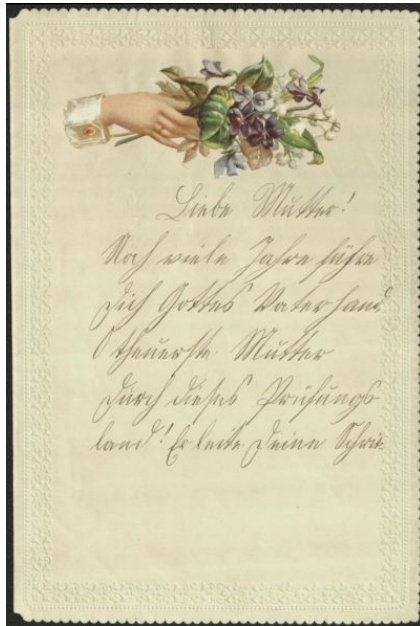 Liebe Mutter!
Noch viele Jahre führe
Dich Gottes Vaterhand
O theuerste Mutter
Durch dieses Prüfungs-
land! Er leite Deine Schrit-